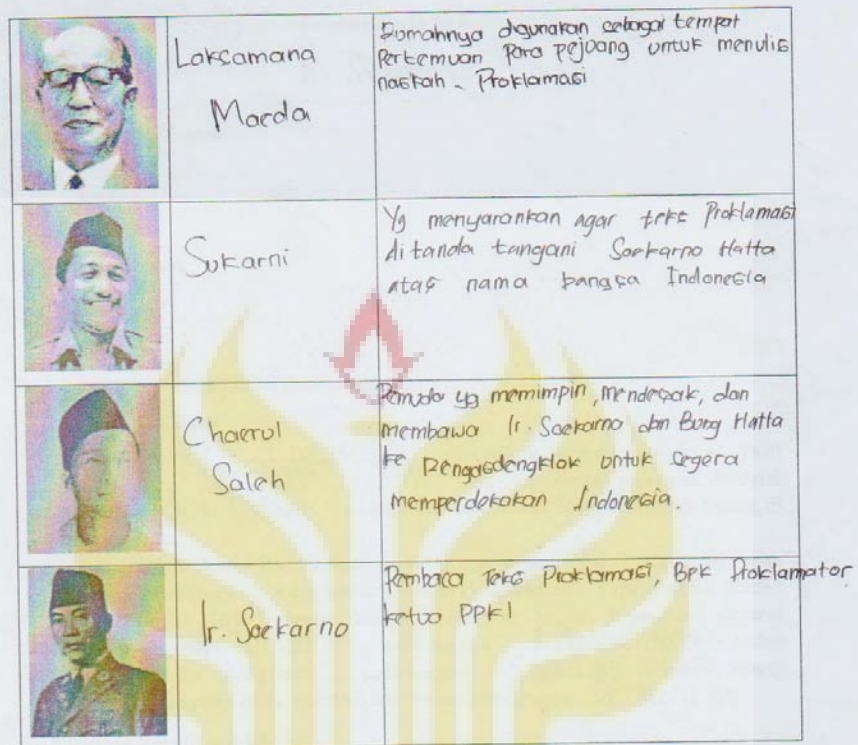 Laksamana
Maeda
Rumahnya digunakan sebagai tempat
Pertemuan Para pejuang untuk menulis
naskah Proklamasi
Sukarni
Yg menyarankan agar teks Proklamasi
di tanda tangani Soekarno Hatta
atas nama bangsa Indonesia
Chaerul
Saleh
Pemuda yg memimpin, mendesak, dan
membawa Ir. Soekarno dan Bung Hatta
ke Rengasdengklok untuk segera
memperdekakan Indonesia.
Ir. Soekarno
Pembaca Teks Proklamasi, BPK Proklamator
ketua PPKI